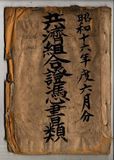 昭和十六年度六月分
共濟組合證憑書類